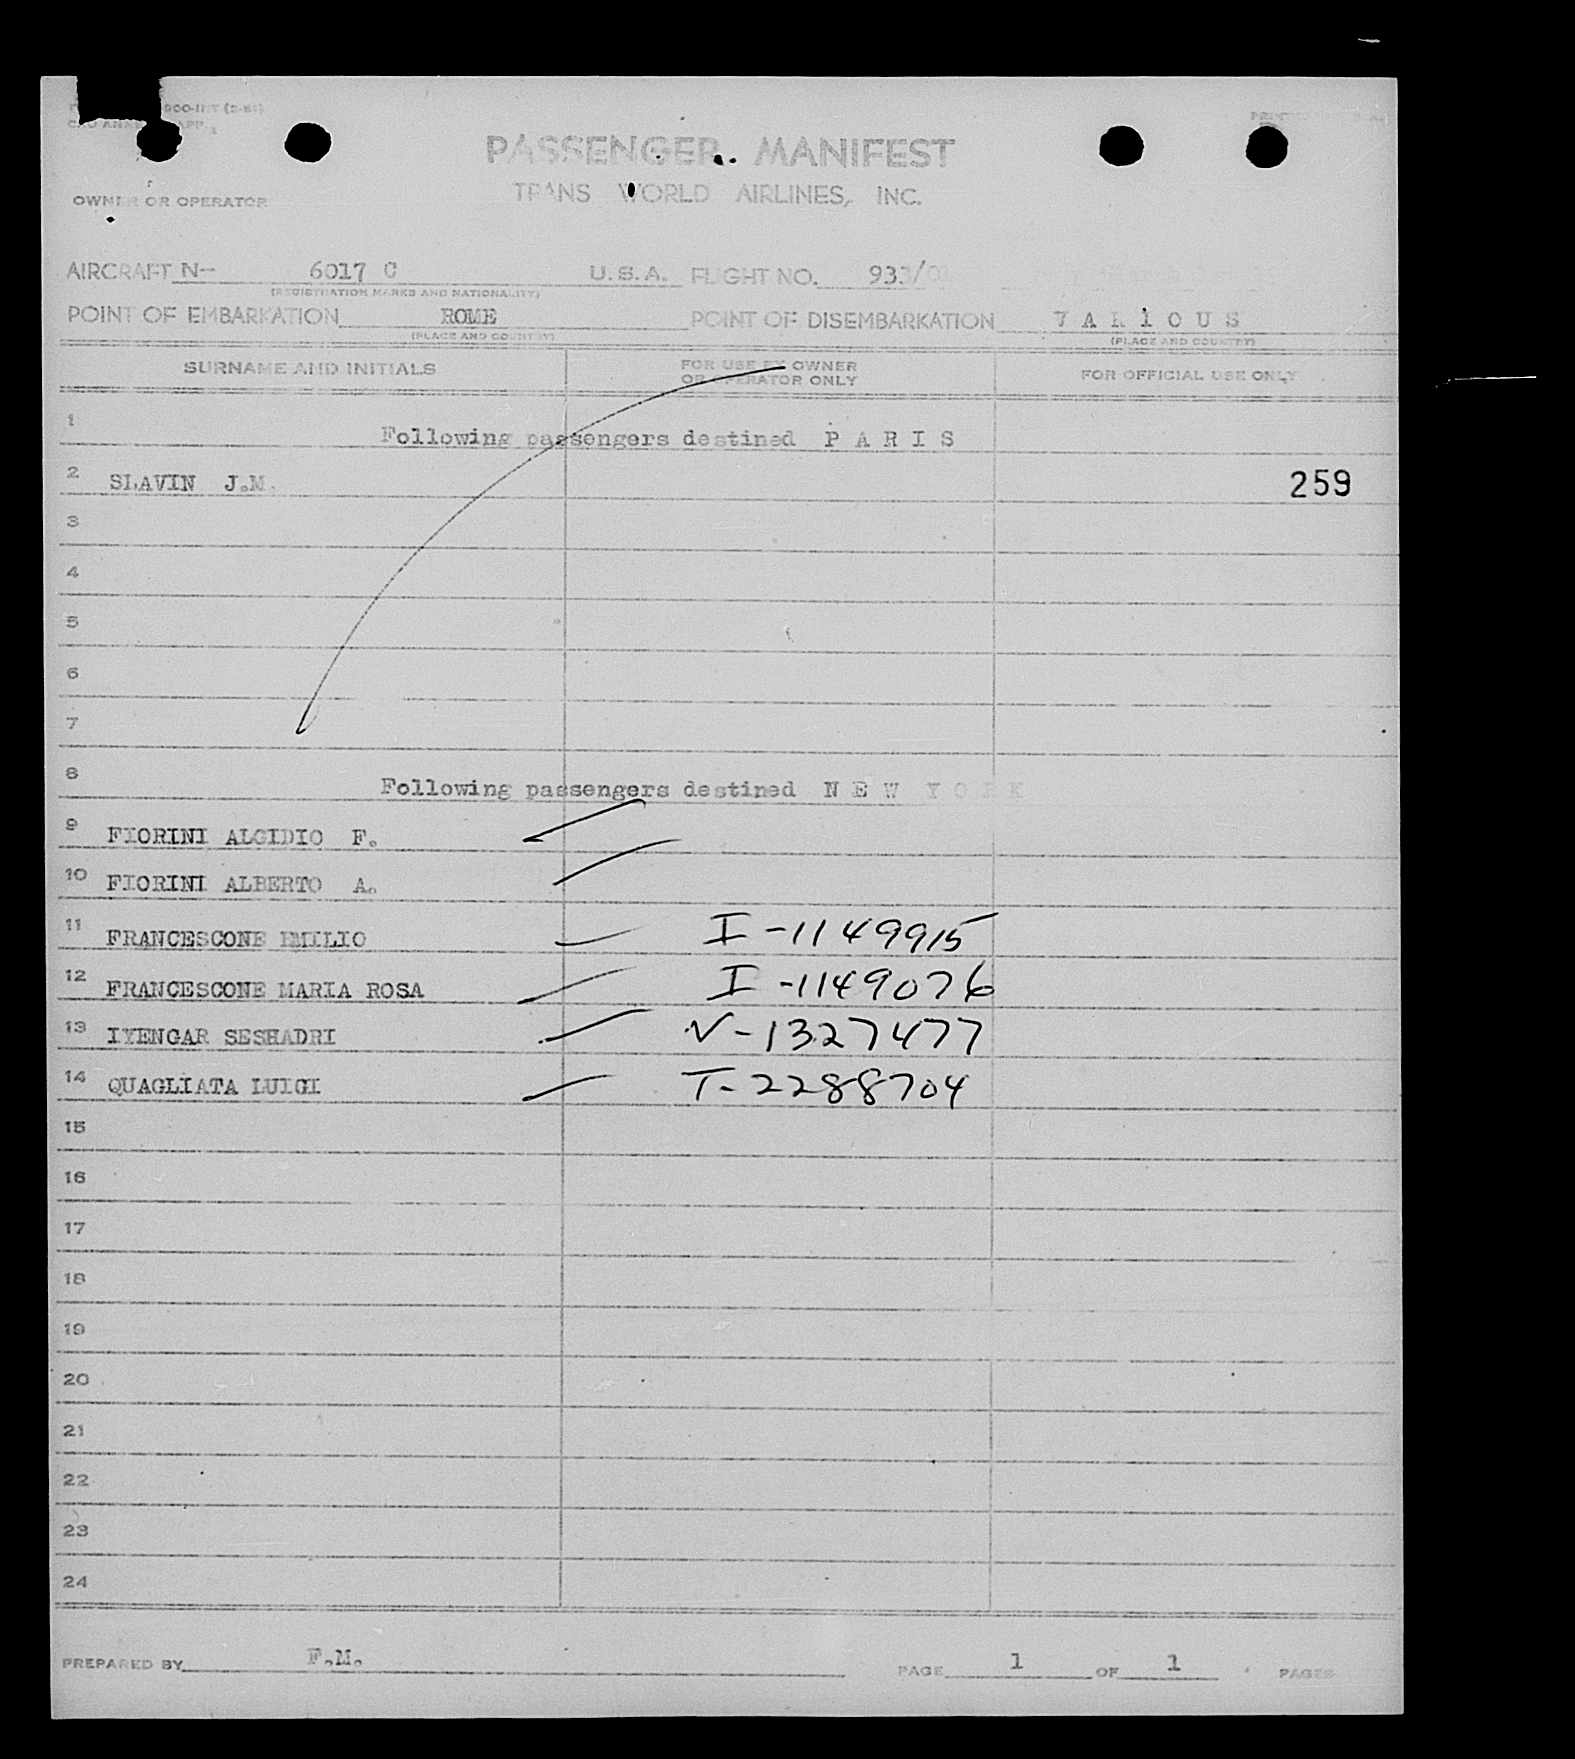 PASSENGER MANIFEST
TRANS WORLD AIRLINES, INC.
OWNER OR OPERATOR
AIRCRAFT N- 6017 C U.S.A. FLIGHT NO. 933/
(REGISTRATION MARKS AND NATIONALITY)
POINT OF EMBARKATION ROME POINT OF DISEMBARKATION V A R i O U S
(PLACE AND COUNTRY) (PLACE AND COUNTRY)
SURNAME AND INITIALS FOR USE BY OWNER OR OPERATOR ONLY FOR OFFICIAL USE ONLY
1 Following passengers destined P A R I S
2 SLAVIN J.M. 259
3
4
5
6
7
8 Following passengers destined N E W Y O R K
9 FIORINI ALGIDIO F.
10 FIORINI ALBERTO A.
11 FRANCESCONE EMILIO I-1149915
12 FRANCESCONE MARIA ROSA I-1149076
13 IYENGAR SESHADRI V-1327477
14 QUAGLIATA LUIGI T-2288704
15
16
17
18
19
20
21
22
23
24
PREPARED BY F.M. PAGE 1 OF 1 PAGES